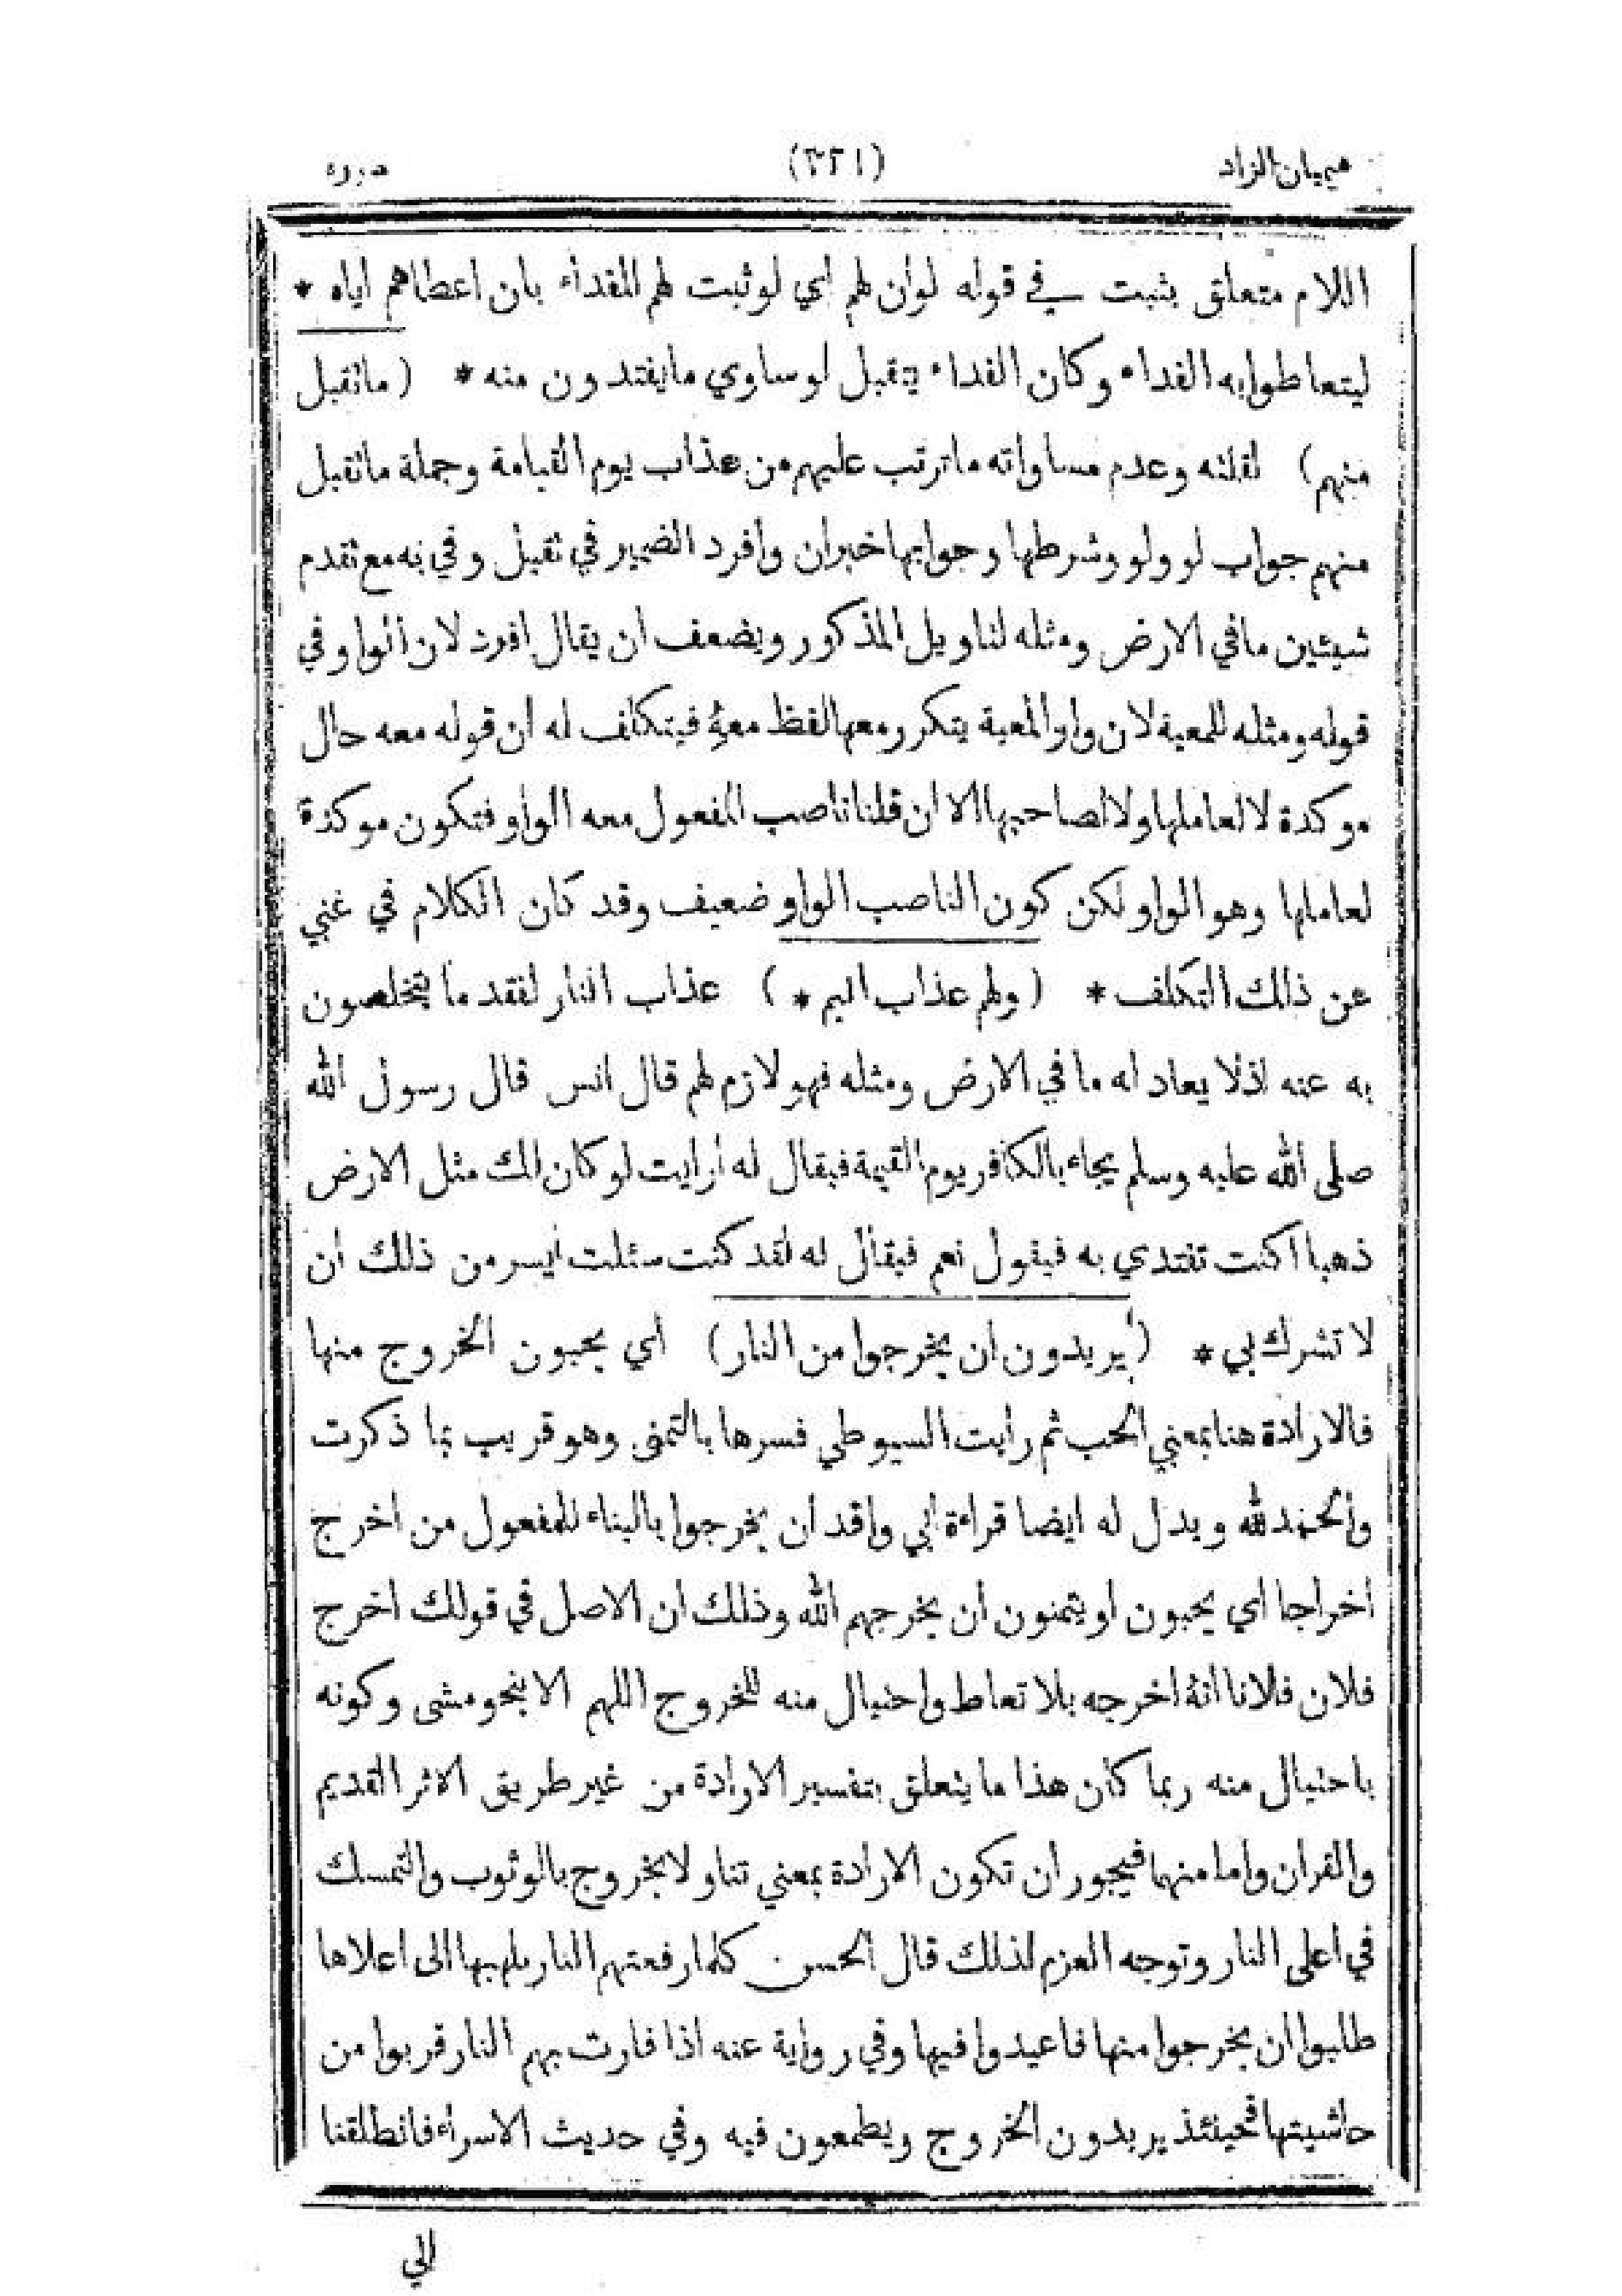 هيميان الزاد (٣٢١)
اللام متعلق بثبت في قوله لوأن لهم أي لو ثبت لهم الفداء بان اعطاهم اياه *
ليتعاطوا به الفداء وكان الفداء يتقبل لو ساوي ما يفتدون منه * (ما تقبل
منهم) لقلته وعدم مساواته ما ترتب عليهم من عذاب يوم القيامة وجملة ما تقبل
منهم جواب لو ولو وشرطها وجوابها خبر ان وأفرد الضمير في تقبل وفي به مع تقدم
شيئين ما في الارض ومثله لتاويل المذكور ويضعف ان يقال افرد لان الواو في
قوله ومثله للمعية لان واو المعية يتكرر معها لفظ معه فيتكلف له أن قوله معه حال
موكدة لا لعاملها ولا لصاحبها الا ان قلنا ناصب المفعول معه الواو فتكون موكدة
لعاملها وهو الواو لكن كون الناصب الواو ضعيف وقد كان الكلام في غني
عن ذلك التكلف * (ولهم عذاب اليم *) عذاب النار لفقد ما يتخلصون
به عنه اذ لا يعادله ما في الارض ومثله فهو لازم لهم قال انس قال رسول الله
صلى الله عليه وسلم يجاء بالكافر يوم القيمة فيقال له أرايت لو كان لك مثل الارض
ذهبا اكنت تفتدي به فيقول نعم فيقال له لقد كنت سئلت أيسر من ذلك أن
لا تشرك بي * (يريدون ان يخرجوا من النار) أي يحبون الخروج منها
فالارادة هنا بمعني الحب ثم رأيت السيوطي فسرها بالتمنى وهو قريب بما ذكرت
والحمد لله ويدل له ايضا قراءة ابي واقد ان يخرجوا بالبناء للمفعول من اخرج
أخراجا اي يحبون او يتمنون أن يخرجهم الله وذلك ان الاصل في قولك اخرج
فلان فلانا أنه اخرجه بلا تعاط واحتيال منه للخروج اللهم الا بنحو مشى وكونه
باحتيال منه ربما كان هذا ما يتعلق بتفسير الارادة من غير طريق الاثر القديم
والقران واما منهما فيجوز ان تكون الارادة بمعني تناولا بخروج بالوثوب والتمسك
في اعلى النار وتوجه العزم لذلك قال الحسن كلما رفعتهم النار بلهبها الى اعلاها
طلبوا ان يخرجوا منها فاعيدوا فيها وفي رواية عنه اذا فارت بهم النار قربوا من
حاشيتها فحينئذ يريدون الخروج ويطمعون فيه وفي حديث الاسراء فانطلقنا
الي